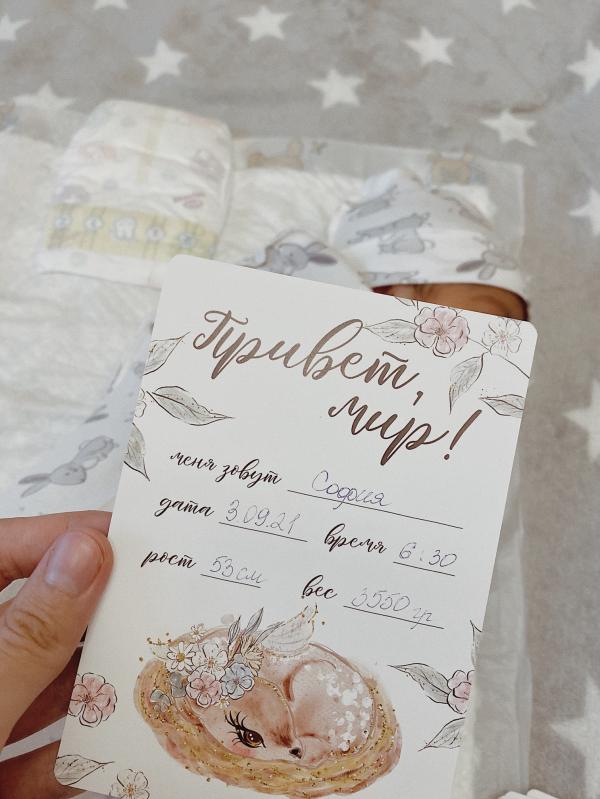 Привет,
мир!
меня зовут София
дата 3.09.21 время 6:30
рост 53 см вес 3550 гр